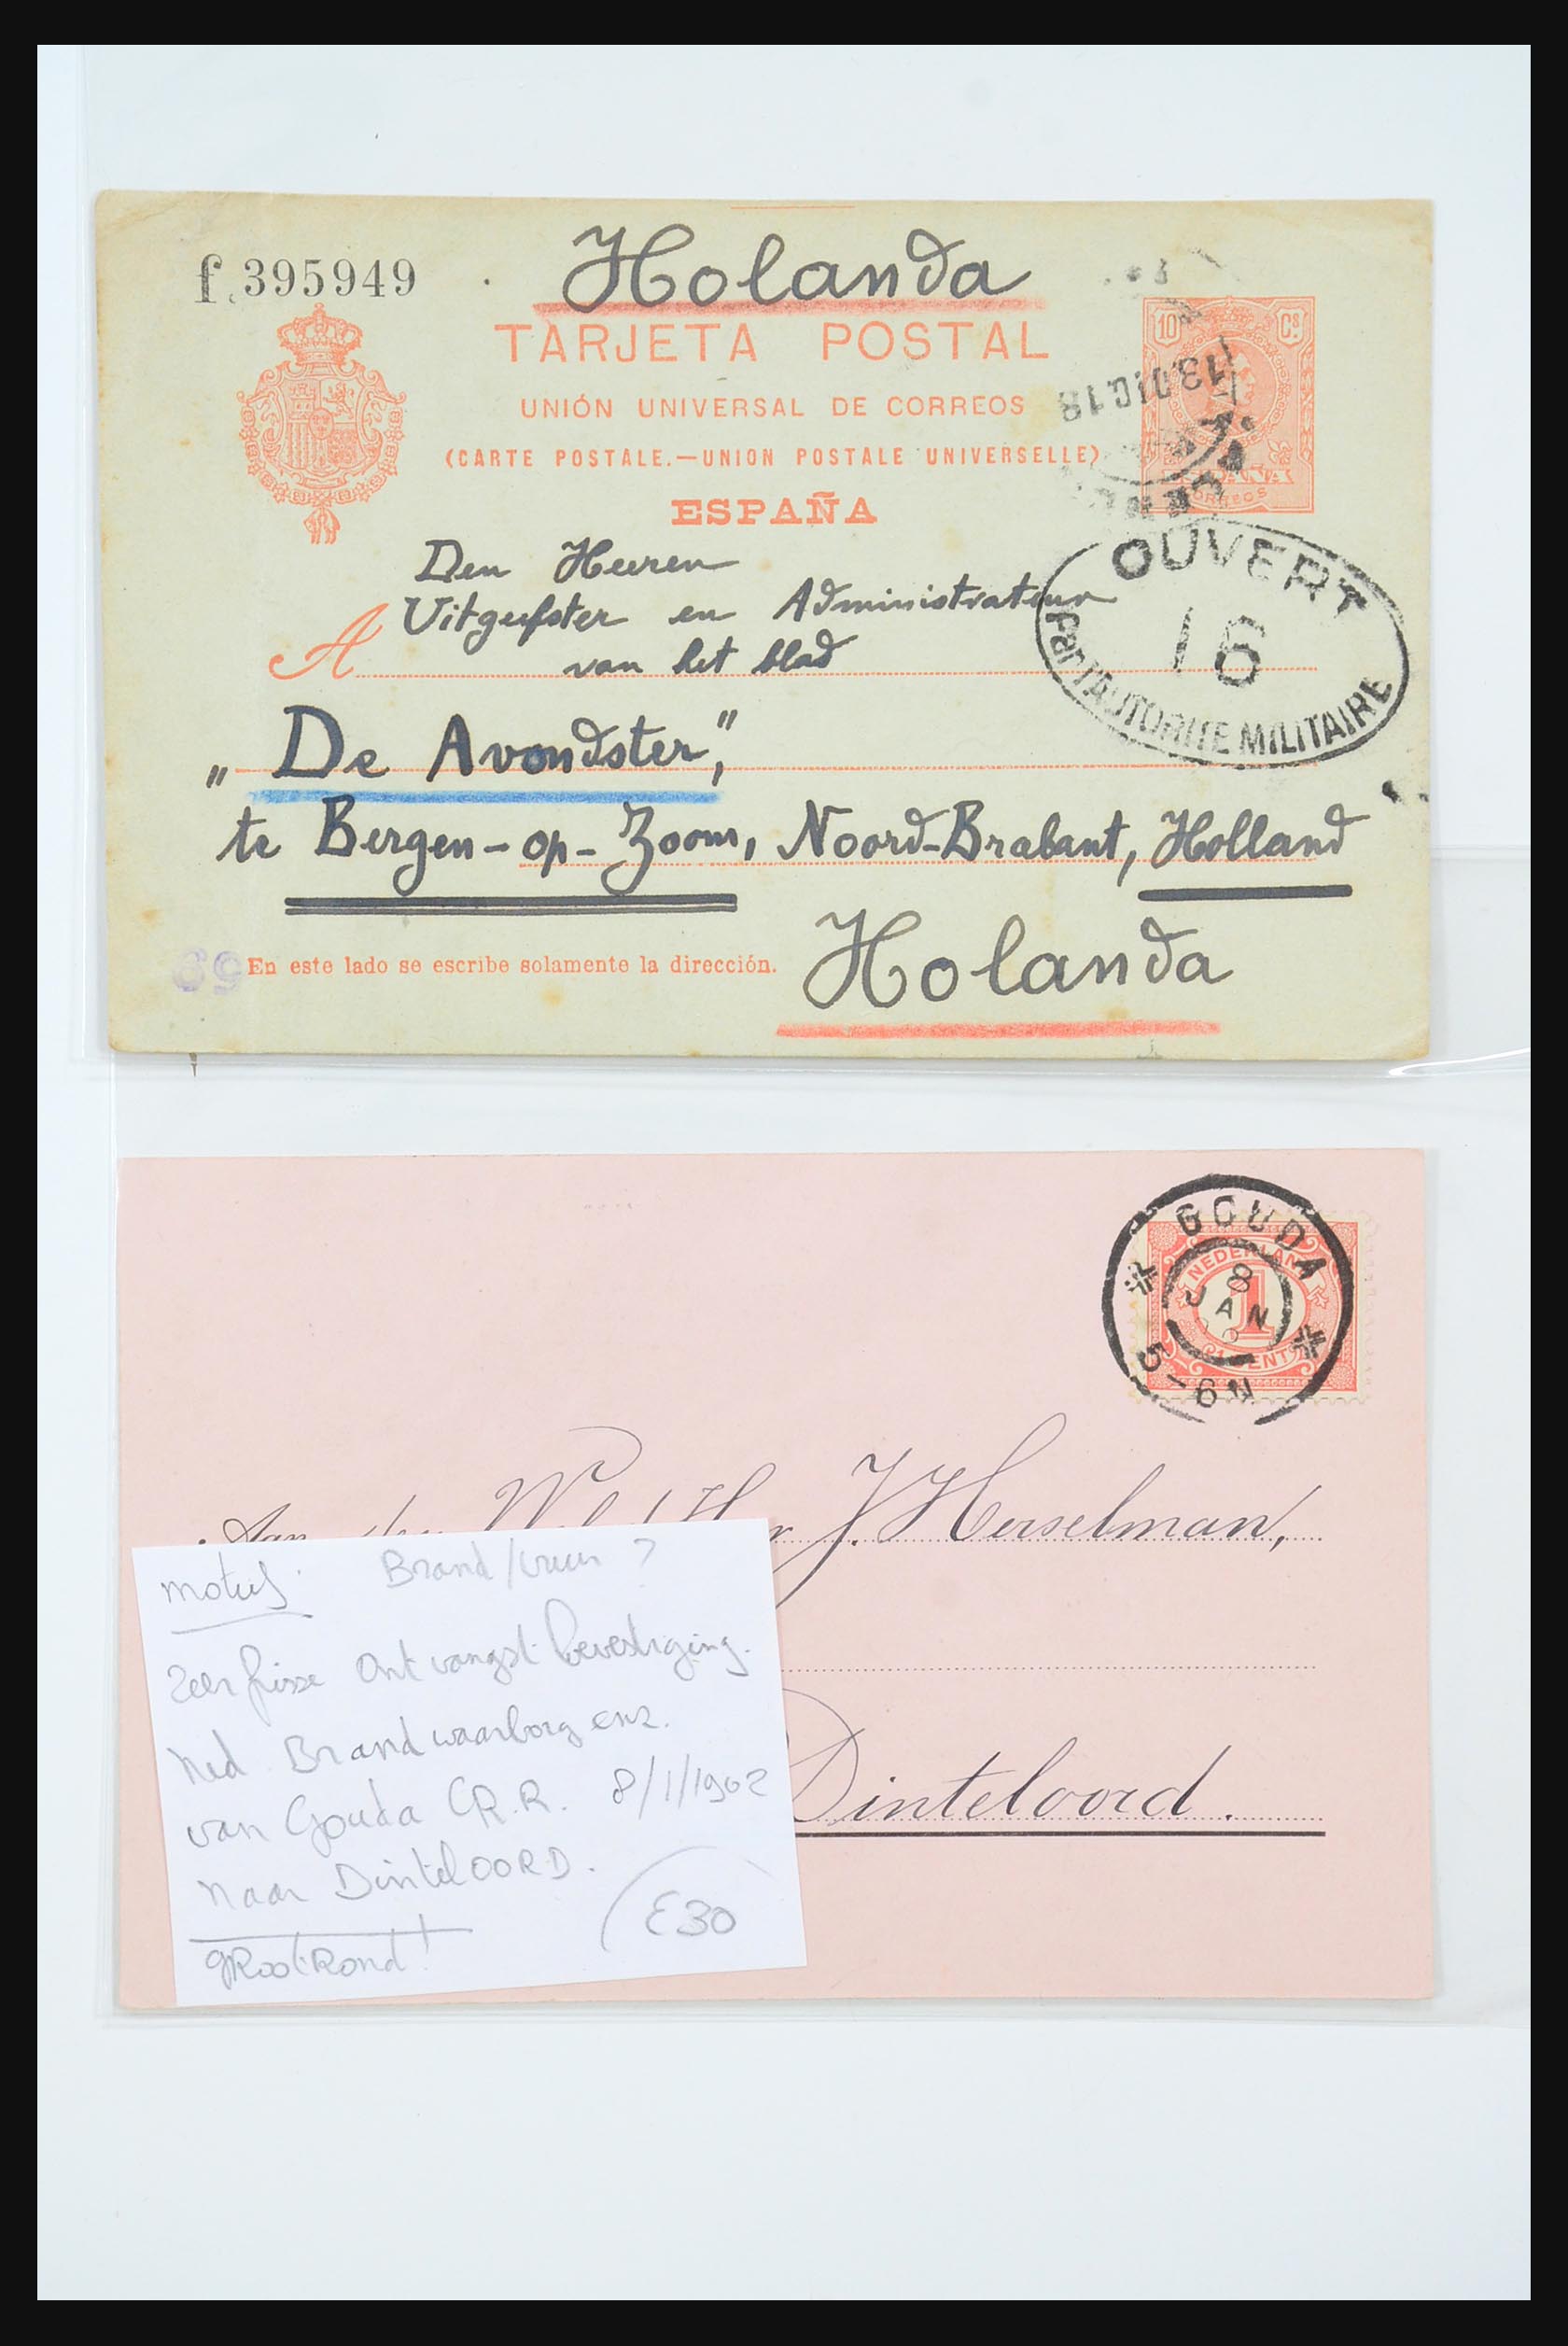 f. 395949
Holanda
TARJETA POSTAL
UNIÓN UNIVERSAL DE CORREOS
(CARTE POSTALE.—UNION POSTALE UNIVERSELLE)
ESPAÑA
10 Cs.
ESPAÑA
CORREOS
13.DIC.18
Den Heeren
Uitgeefster en Administrateur
A van het blad
OUVERT
16
par l'AUTORITE MILITAIRE
„De Avondster,"
te Bergen-op-Zoom, Noord-Brabant, Holland
En este lado se escribe solamente la dirección.
69
Holanda
GOUDA
8
JAN
5-6N
NEDERLAND
1
CENT
Aan den Wel Heer J. Herselman,
Dinteloord.
motief Brand/vuur ?
Zeer frisse Ontvangst bevestiging.
Ned. Brandwaarborg enz.
van Gouda GR.R. 8/1/1902
naar DintelOORD.
gRootRond!
€30